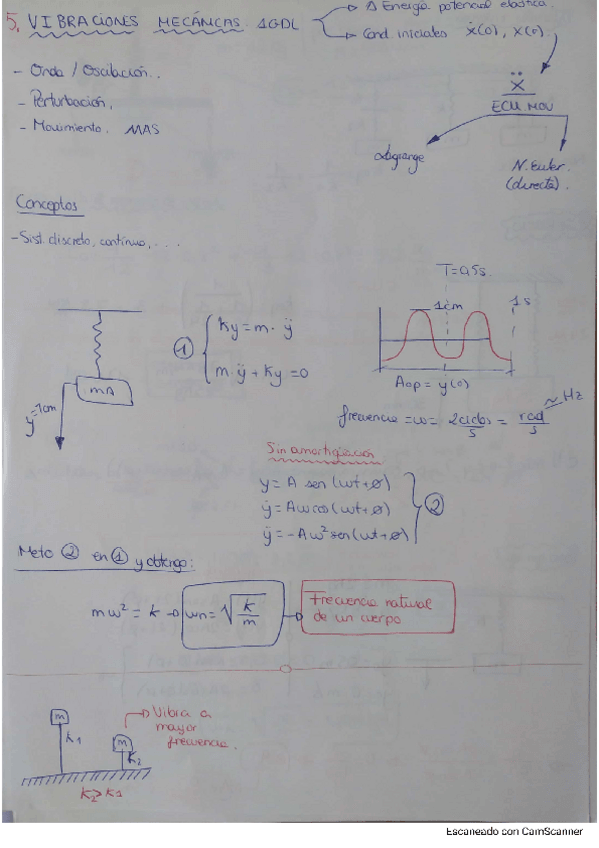 5. VIBRACIONES MECÁNCAS. 1GDL
→ Δ Energía potencial elástica.
→ Cond. iniciales ẋ(0), x(0)
- Onda / Oscilación.
- Perturbación.
- Movimiento. MAS
ẍ
ECU MOV
Lagrange
N. Euler.
(directa).
Conceptos
- Sist. discreto, continuo, ...
T=0,5s.
1cm
1s
① { Ky = m · ÿ
m·ÿ + Ky = 0
m
y=1cm
= y(0)
frecuencia = ω = 2 ciclos/s = rad/s ~ Hz
Sin amortiguación
y = A sen(ωt+ø)
ẏ = Aωcos(ωt+ø)
ÿ = -Aω² sen(ωt+ø)
} ②
Meto ② en ① y obtengo:
mω² = k → ωn = √(k/m) → Frecuencia natural
de un cuerpo
m
K1
m
K2
→ Vibra a
mayor
frecuencia.
K2 > K1
Escaneado con CamScanner